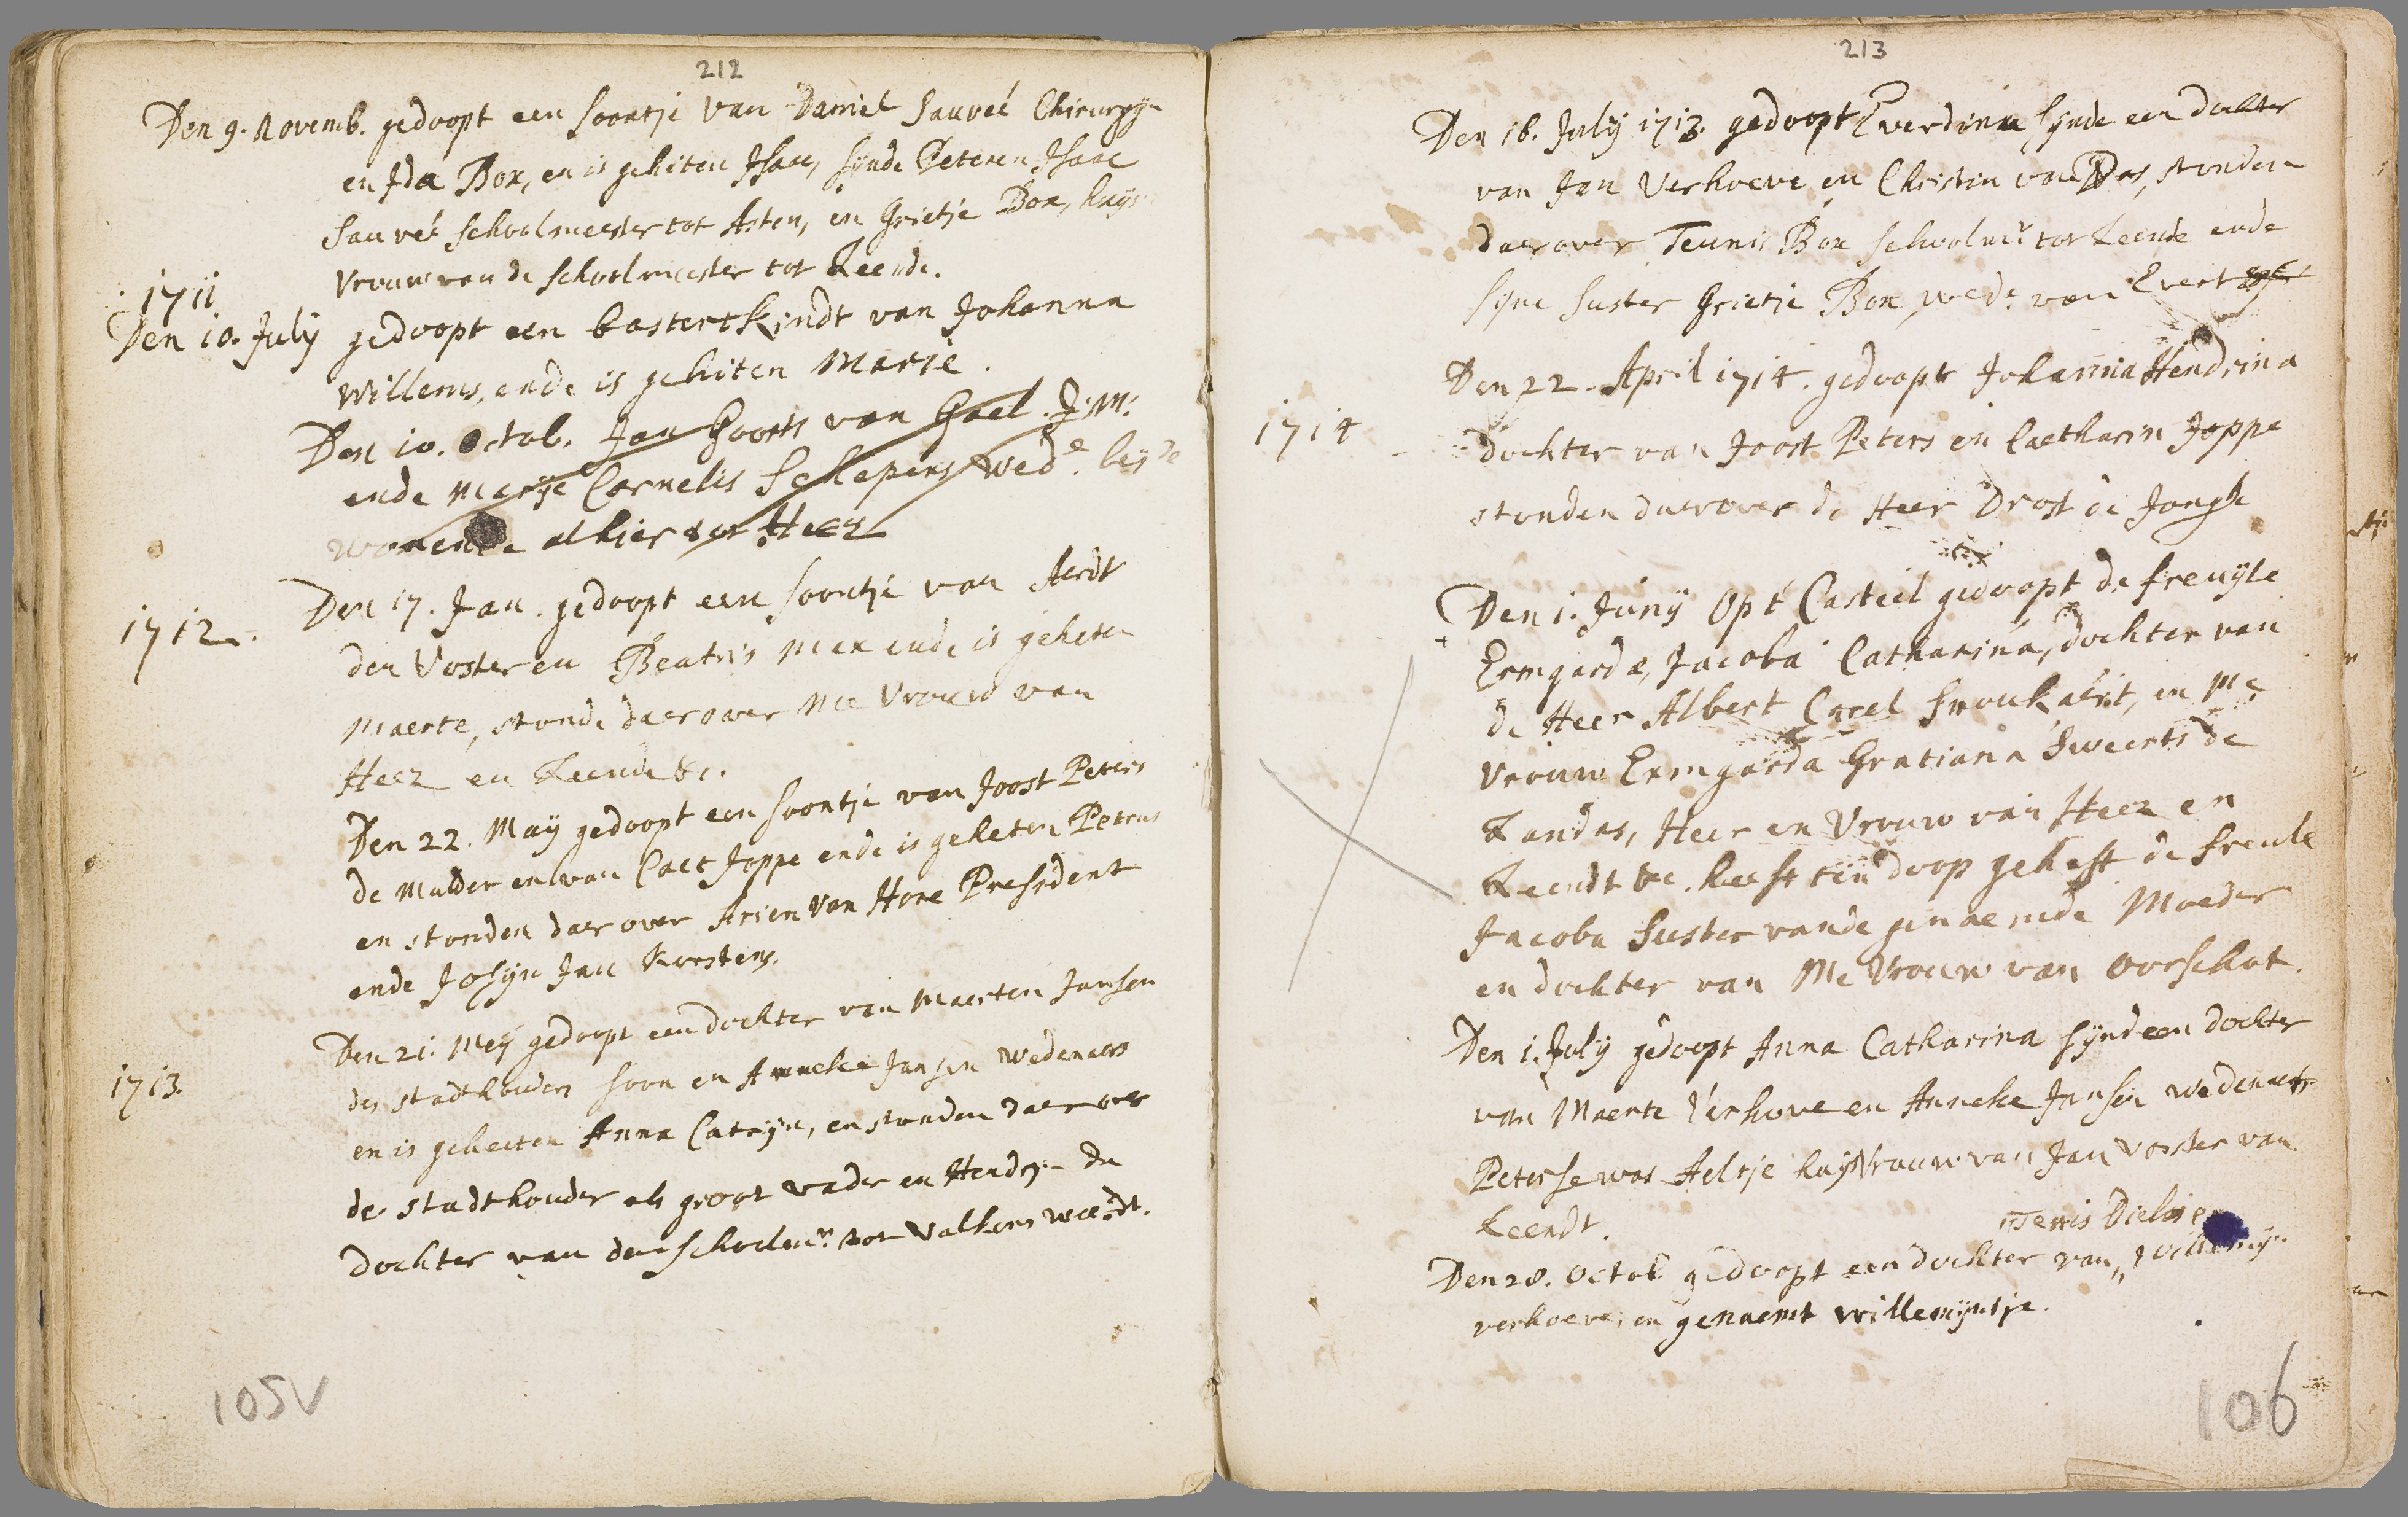 212
Den 9. Novemb. gedoopt een soontje van Daniel Sauveé Chirurgijn
en Ida Box, en is geheten Isaac, sijnde Peteren Isaac
Sauveé schoolmeester tot Asten, en Grietje Box, huijs
vrouw van de schoolmeester tot Leende.
1711
Den 10. July gedoopt een bastertkindt van Johanna
Willems, ende is geheten Marie.
Den 10. Octob. Jan Goorts van Gael. J: M:
ende Marije Cornelis Schepens wed.e beijde
wonende alhier tot Heez
1712.
Den 17. Jan. gedoopt een soontje van Aerdt
den Voster en Beatris Mex ende is geheten
Maerte, stonde daerover Me Vrouw van
Heez en Leende &c.
Den 22. Maij gedoopt een soontje van Joost Peters
de Mulder en van Caet Joppe ende is geheten Petrus
en stonden daer over Arien van Hove President
ende Josijn Jan Korstens.
1713.
Den 21. Meij gedoopt een dochter van Maerten Jansen
des stadthouders soon en Anneke Jansen Wedenaers
en is geheeten Anna Catrijn, en stonden daer over
de stadthouder als groot vader en Hendrijn de
dochter van den schoolmr. tot Valkenswaerdt.
105V
213
Den 16. July 1713. gedoopt Everdina sijnde een dochter
van Jan Verhoeve en Christin van Das, stonden
daerover Teunis Box schoolmr. tot Leende ende
sijne suster Grietie Box wede. van Evert
1714
Den 22. April 1714. gedoopt Johanna Hendrina
dochter van Joost Peters en Caetharin Joppe
stonden daerover de Heer Drost de Jongh
Den 1. Junij op 't Casteel gedoopt de freuijle
Ermgarda, Jacoba Catharina, dochter van
de Heer Albert Carel Snoukaert, en Me
vrouw Ermgarda Gratiana Sweerts de
Landas, Heer en Vrouw van Heez en
Leendt &c. heeft ten doop geheft de freule
Jacoba suster vande genaemde Moeder
en dochter van Me Vrouw van Oorschot.
Den 1. July gedoopt Anna Catharina sijnd een dochter
van Maerte Verhove en Anneke Jansen wedenaers
Peterse was Aeltje huijsvrouw van Jan Voster van
Leendt.
Tenis Dielis en
Den 28. Octob. gedoopt een dochter van Willemijn
verhoeve, en genaemt Willemijntje.
106